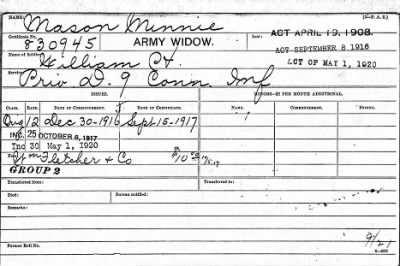 NAME: Mason Minnie (3—P. A. S.)
Certificate No. 830945 ARMY WIDOW. LAW: ACT APRIL 19, 1908.
ACT SEPTEMBER 8, 1916
ACT OF MAY 1, 1920
Name of Soldier: William H.
Service: Priv. D. 9 Conn. Inf
ISSUES. MINORS—$2 PER MONTH ADDITIONAL.
CLASS. RATE. DATE OF COMMENCEMENT. DATE OF CERTIFICATE. NAME. COMMENCING. ENDING.
Orig 12 Dec 30-1916 Sept 15-1917
INC. 25 OCTOBER 6, 1917
Inc 30 May 1, 1920
Fletcher & Co $10
GROUP 2
Transferred from: Transferred to:
Died: Bureau notified:
Remarks:
Former Roll No. 9/21